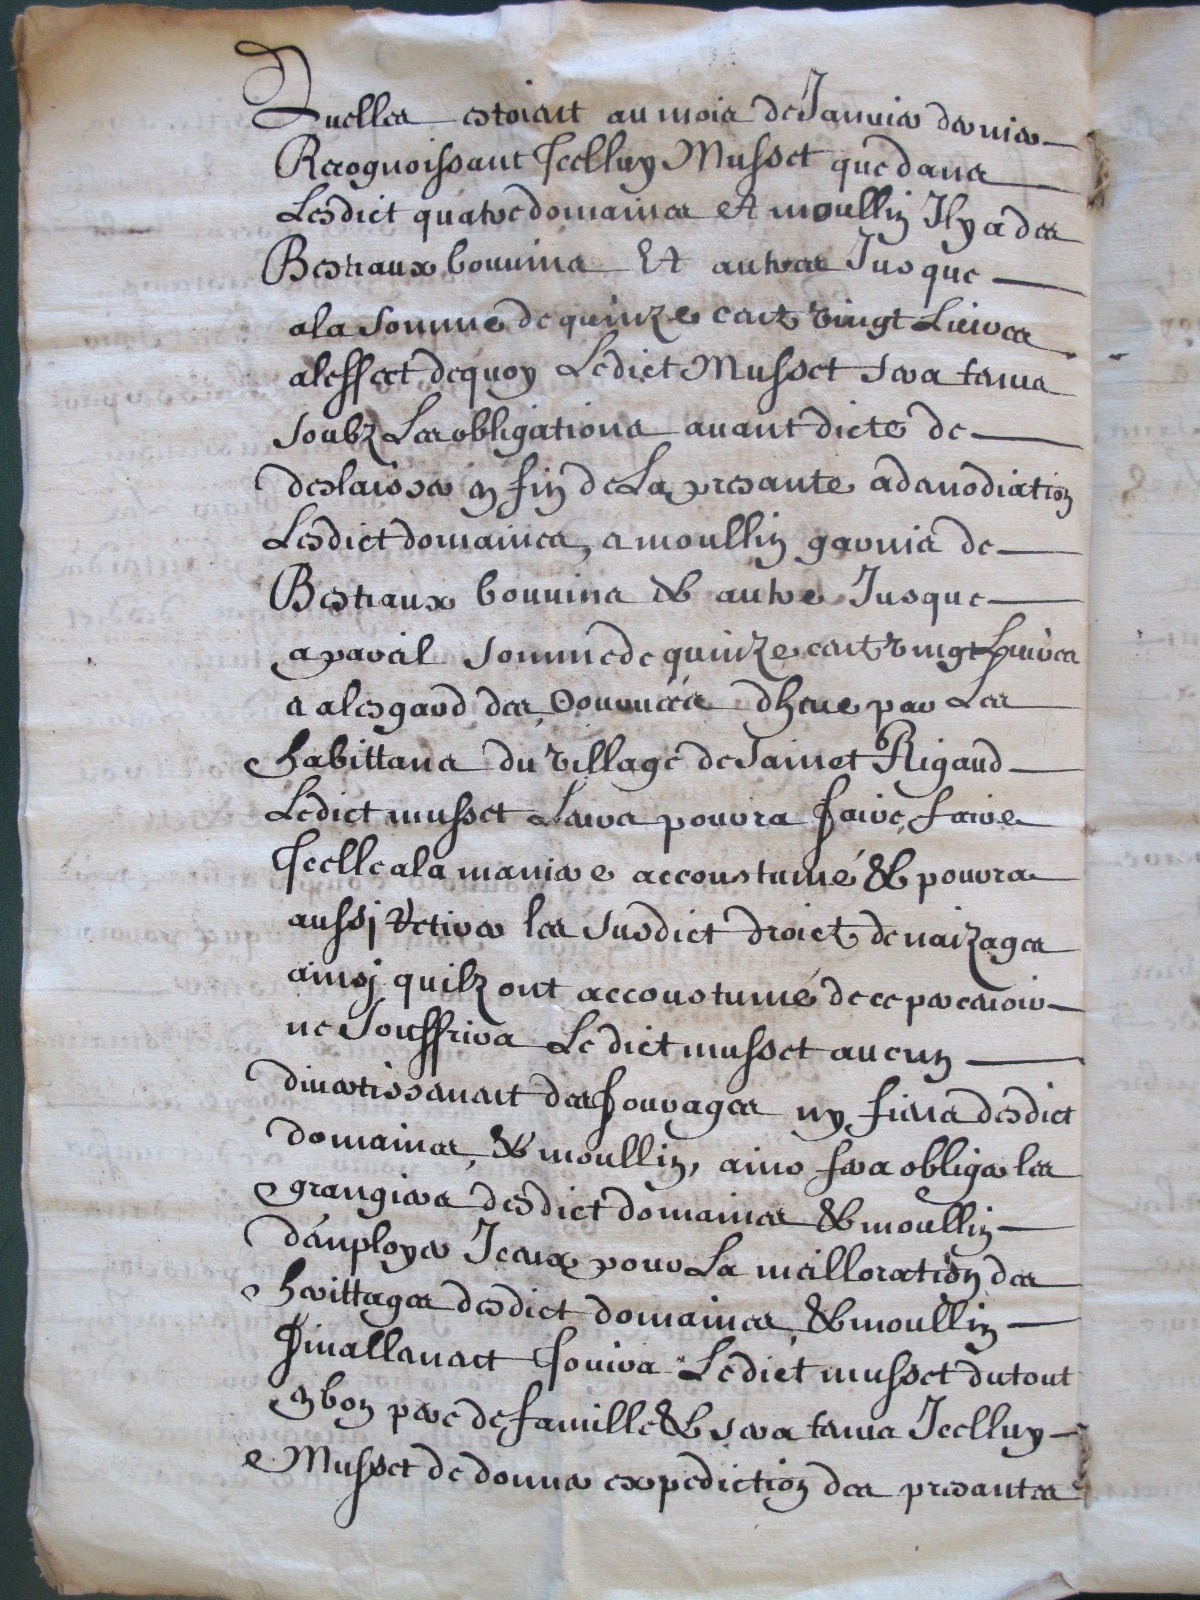 Quelles estoient au mois de Janvier dernier
Recognoissant Icelluy Musset que dans
Lesdict quatre domaines et moullin Il y a des
Bestiaux bouvins Et autres Jusque
a la somme de quinze cent vingt Livres
a leffect dequoy Ledict Musset sera tenus
soubz Les obligations avant dicte de
deslaisser en fin de La presante admodiation
Lesdict domaines, a moullin garnis de
Bestiaux bouvins & autre Jusque
a pareil somme de quinze cent vingt Livres
a a lesgard des Courvées dheue par Les
habittans du village de Sainct Rigaud
Ledict musset Leurs pourra faire faire
Icelle a la maniere accoustumé & pourra
aussj retirer les susdict droict de naizages
ainsj quilz ont accoustumé de ce percevoir
ne Souffrira Ledict musset aucun
divertissement des fourages ny fiens desdict
domaines & moullin, ains fera obliger les
grangiers desdict domaines & moullin
demployer Iceux pour La meilloration des
herittages desdict domaines & moullin
finallement Jouira Ledict musset du tout
en bon pere de famille & sera tenus Icelluy
Musset de donner expediction des presantes